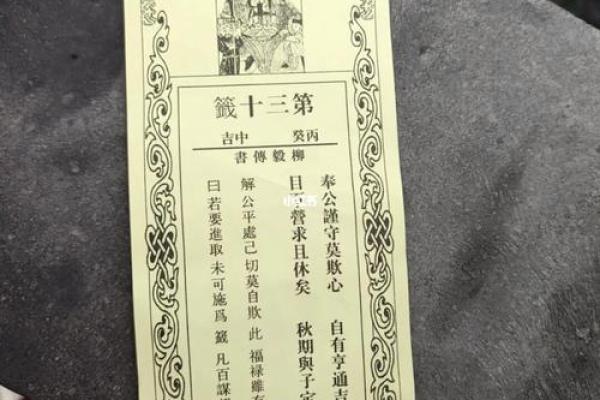 第三十籤
丙癸 中吉
柳毅傳書
奉公謹守莫欺心 自有亨通吉
目下營求且休矣 秋期與子定
解 公平處己 切莫自欺 此 福祿雖有
曰 若要進取 未可施爲 籤 凡百謀
小红书